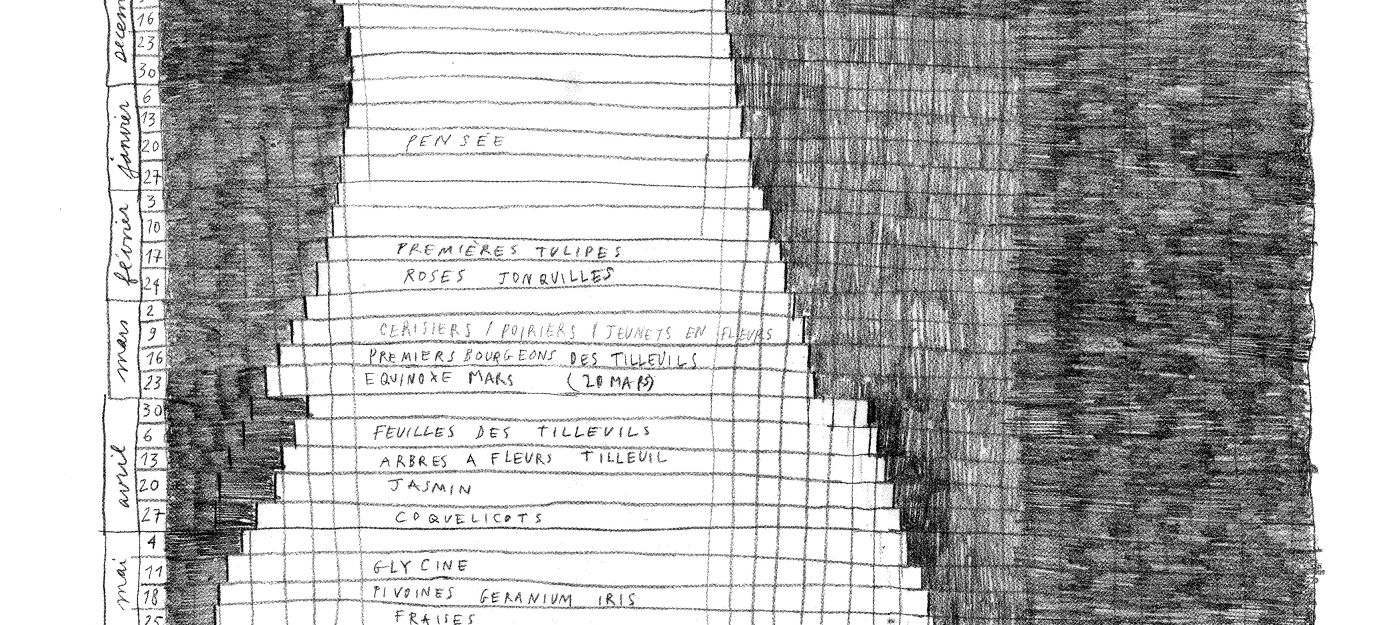 décem
16
23
30
janvier
6
13
20 PENSÉE
27
février
3
10
17 PREMIÈRES TULIPES
24 ROSES JONQUILLES
mars
2
9 CERISIERS / POIRIERS / JEUNETS EN FLEURS
16 PREMIERS BOURGEONS DES TILLEULS
23 EQUINOXE MARS (20 MARS)
avril
30
6 FEUILLES DES TILLEULS
13 ARBRES A FLEURS TILLEUL
20 JASMIN
27 COQUELICOTS
mai
4
11 GLYCINE
18 PIVOINES GERANIUM IRIS
25 FRAISES